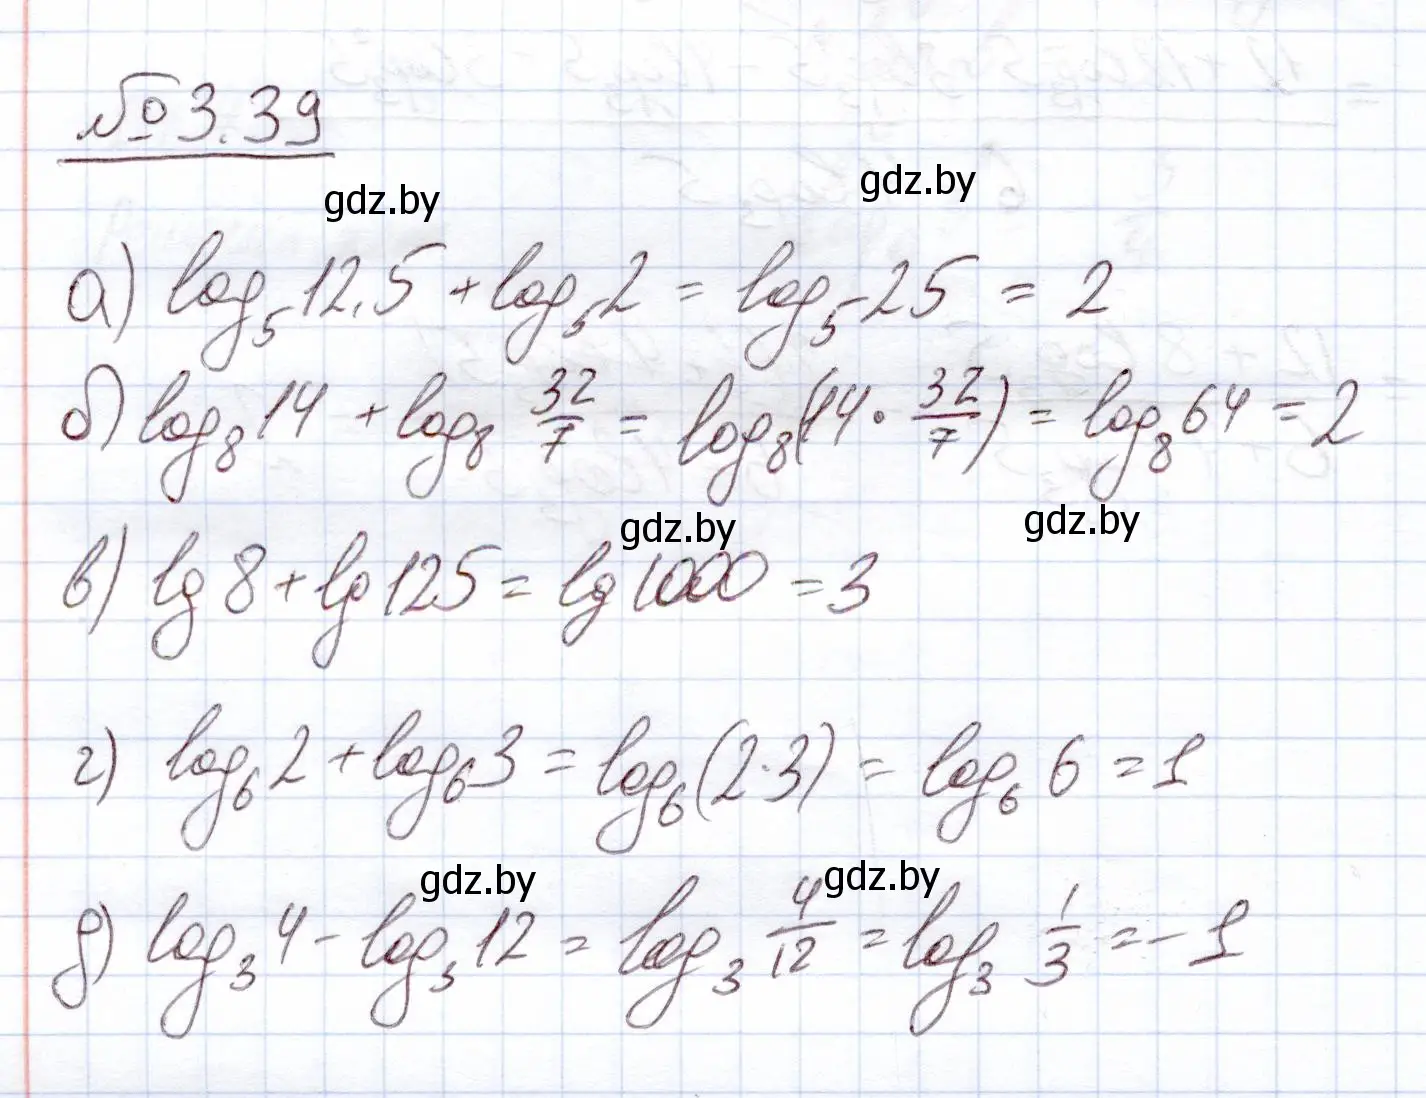 №3.39
gdz.by gdz.by
а) log₅12,5 + log₅2 = log₅25 = 2
б) log₈14 + log₈ 32/7 = log₈(14 · 32/7) = log₈64 = 2
gdz.by gdz.by
в) lg 8 + lg 125 = lg 1000 = 3
г) log₆2 + log₆3 = log₆(2·3) = log₆6 = 1
gdz.by gdz.by
д) log₃4 - log₃12 = log₃ 4/12 = log₃ 1/3 = -1